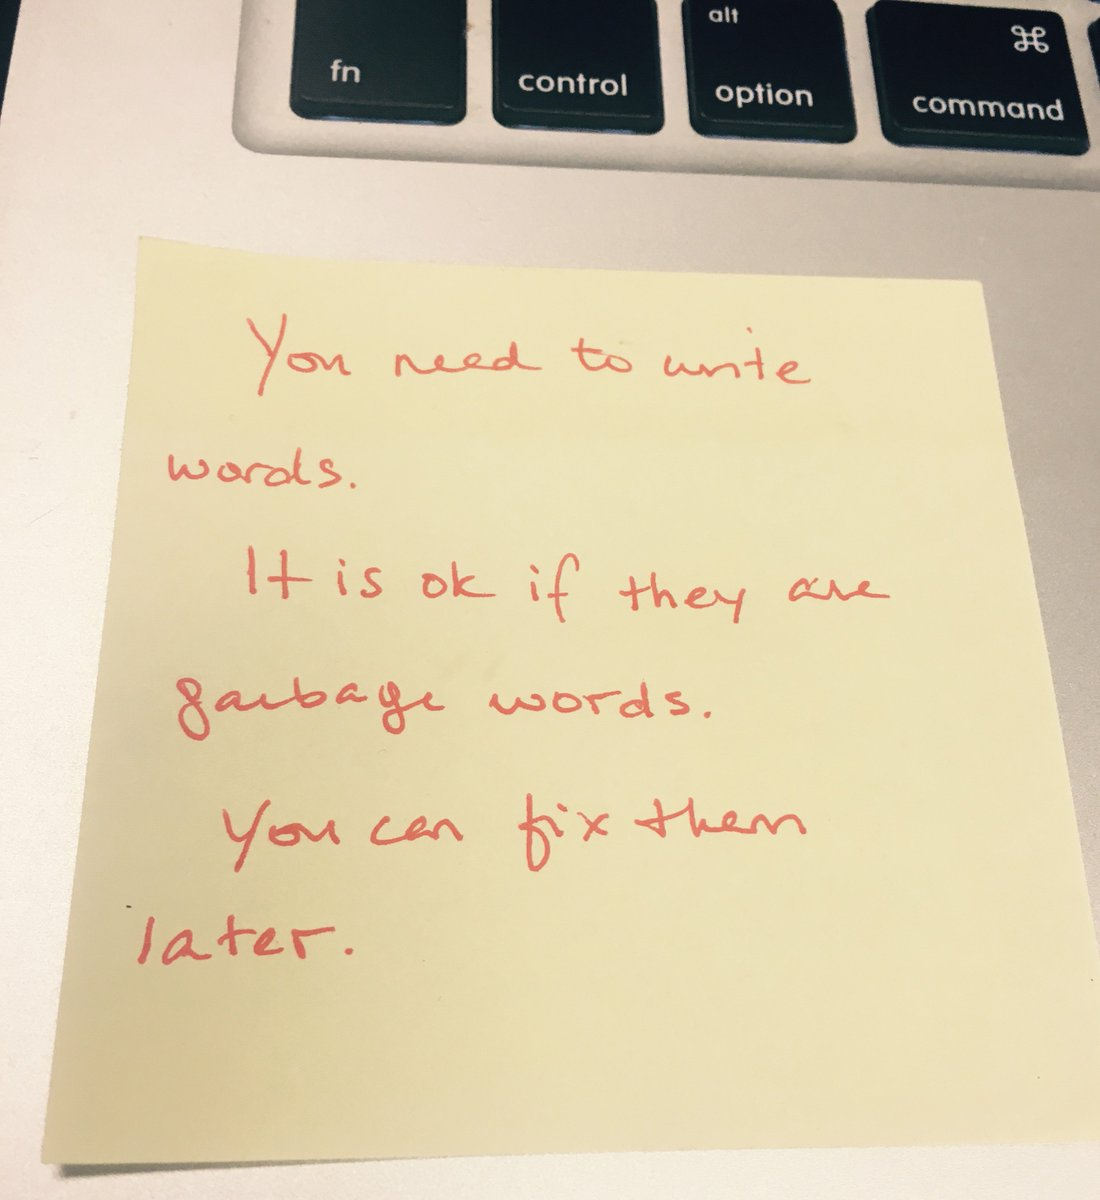 alt
⌘
fn
control
option
command
You need to write
words.
It is ok if they are
garbage words.
You can fix them
later.